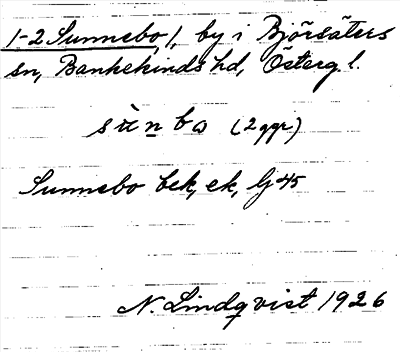 1-2 Sunnebo /, by i Björsäters
sn, Bankekinds hd, Österg. l.
sùnbo (2 ggr)
Sunnebo bek, ek, lj 45
N. Lindqvist 1926